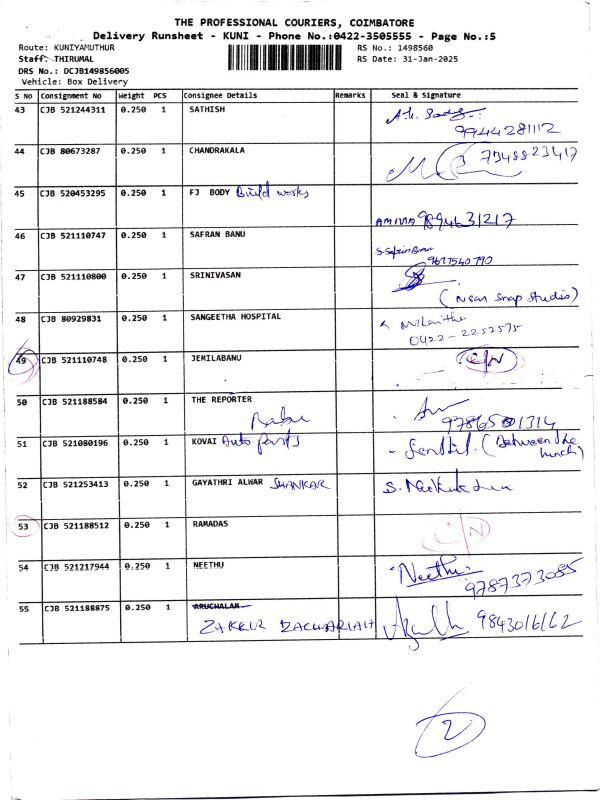 THE PROFESSIONAL COURIERS, COIMBATORE
Delivery Runsheet - KUNI - Phone No.:0422-3505555 - Page No.:5
Route: KUNIYAMUTHUR RS No.: 1498560
Staff: THIRUMAL RS Date: 31-Jan-2025
DRS No.: DCJB149856005
Vehicle: Box Delivery
S No Consignment No Weight PCS Consignee Details Remarks Seal & Signature
43 CJB 521244311 0.250 1 SATHISH
9944281112
44 CJB 80673287 0.250 1 CHANDRAKALA 7348823417
45 CJB 520453295 0.250 1 FJ BODY Build works
AMINA 9894631217
46 CJB 521110747 0.250 1 SAFRAN BANU
9677540790
47 CJB 521110800 0.250 1 SRINIVASAN
(Near Snap Studio)
48 CJB 80929831 0.250 1 SANGEETHA HOSPITAL
0422-2252575
49 CJB 521110748 0.250 1 JEMILABANU C/N
50 CJB 521188584 0.250 1 THE REPORTER
Babu
51 CJB 521080196 0.250 1 KOVAI Auto parts - Senthil. (Between the
lunch)
52 CJB 521253413 0.250 1 GAYATHRI ALWAR SHANKAR
53 CJB 521188512 0.250 1 RAMADAS C/N
54 CJB 521217944 0.250 1 NEETHU Neethu
9787373085
55 CJB 521188875 0.250 1 ARUCHALAM
ZAKKIR ZACHARIAH 9843016162
2